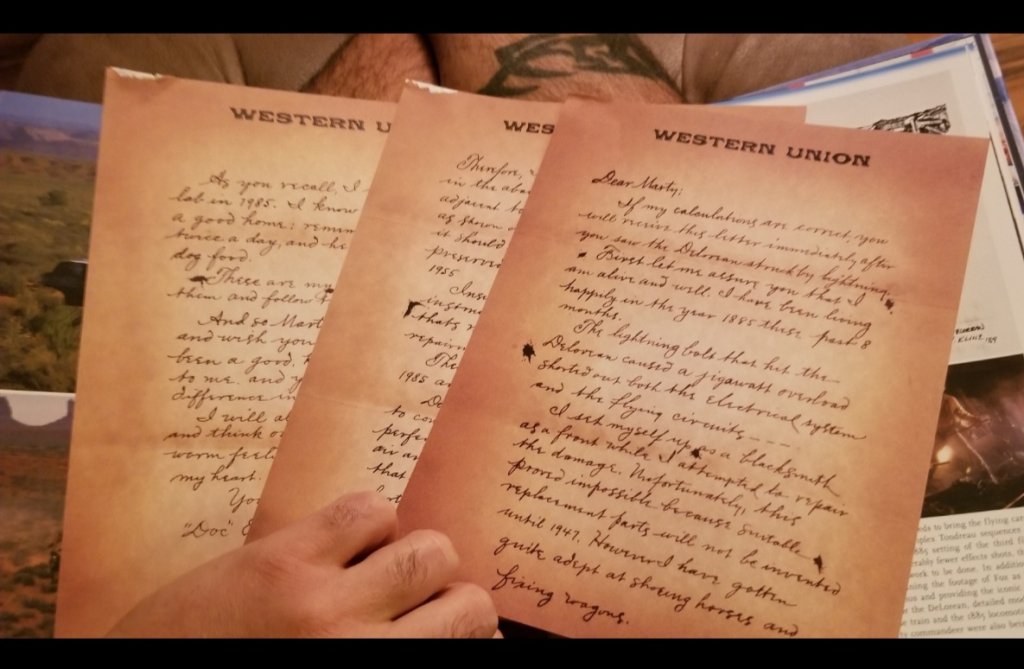 WESTERN U
As you recall, I
lab in 1985. I know
a good home: remem
twice a day, and he
dog food.
These are my
them and follow t
And so Mart
and wish you
been a good,
to me, and y
difference in
I will al
and think o
warm feel
my heart.
Yo
"Doc" E
WES
Therefore,
in the aba
adjacent to
as shown o
it should
preserve
1955
Inse
instru
thats
repair
The
1985 a
De
to co
perfe
air an
that
WESTERN UNION
Dear Marty;
If my calculations are correct, you
will receive this letter immediately after
you saw the Delorean struck by lightning.
First let me assure you that I
am alive and well. I have been living
happily in the year 1885 these past 8
months.
The lightning bolt that hit the
Delorean caused a jigawatt overload
shorted out both the electrical system
and the flying circuits - - - -
I set myself up as a blacksmith
as a front while I attempted to repair
the damage. Unfortunately, this
proved impossible because suitable
replacement parts will not be invented
until 1947. However I have gotten
quite adept at shoeing horses and
fixing wagons.
KLINE '89
ds to bring the flying car
plex Tondreau sequences
885 setting of the third fi
rably fewer effects shots, th
work to be done. In addition
ning the footage of Fox as
us and providing the iconic
r the DeLorean, detailed mod
e train and the 1885 locomoti
y commandeer were also bei